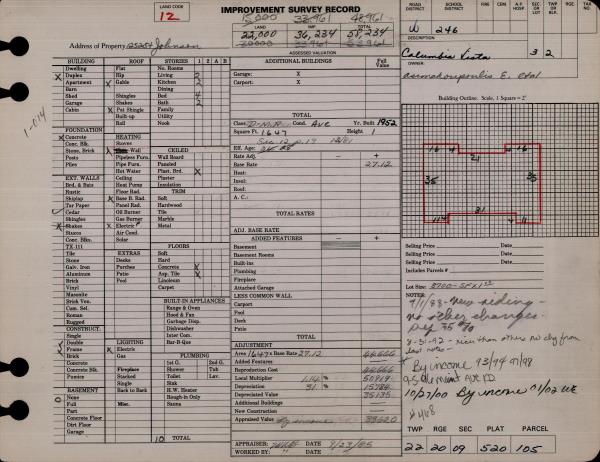 LAND CODE
12
IMPROVEMENT SURVEY RECORD
15,000 33,961 48,961
LAND IMP TOTAL
22,000 36,234 58,234
ASSESSED VALUATION
Address of Property 1252 54 Johnson
ROAD DISTRICT SCHOOL FIRE CEM. A.P. HOSP. SEC OR LOT TWP OR BLK RGE ACRES
W 246
DESCRIPTION
Columbia Vista 3 2
OWNER:
E. etal
Building Outline: Scale, 1 Square = 2'
16 4 4 16
21
35 35
31
11 4 4 11
BUILDING ROOF STORIES 1 2 A B
Dwelling Flat No. Rooms
Duplex Hip Living 2
Apartment Gable Kitchen 2
Barn Dining
Shed Shingles Bed 4
Garage Shakes Bath 2
Cabin Pat Shingle Family
Built-up Utility
Roll Nook
1-614
FOUNDATION HEATING
Concrete Stoves
Conc. Blk. CEILED
Stone, Brick Wall Wall Board
Posts Pipeless Furn. Paneled
Piles Pipe Furn. Plast. Brd.
Hot Water Plaster
EXT. WALLS Ceiling Insulation
Brd. & Bats Heat Pump
Rustic Floor Rad. TRIM
Shiplap Base B. Rad. Soft
Tar Paper Panel Rad. Hardwood
Cedar Oil Burner Tile
Shingles Gas Burner Marble
Shakes Electric Metal
Stucco Air Cool.
Conc. Blks. Solar
TX-111 FLOORS
Tile EXTRAS Soft
Stone Decks Hard
Galv. Iron Porches Concrete
Aluminum Patio Asp. Tile
Brick Pool Linoleum
Vinyl Carpet
Masonite
Brick Ven. BUILT-IN APPLIANCES
Com. Sel. Range & Oven
Roman Hood & Fan
Rugged Garbage Disp.
CONSTRUCT. Dishwasher
Single Inter Com.
Double LIGHTING Bar-B-Que
Frame Electric
Brick Gas PLUMBING
Concrete 1st G. 2nd G.
Concrete Blk. Fireplace Shower Tub
Pumice Stacked Toilet Lav.
Single Sink
BASEMENT Back to Back H. W. Heater
None Rough-in Only
Full Misc. Sauna
Part
Concrete Floor
Dirt Floor
Garage
10 TOTAL
ADDITIONAL BUILDINGS Full Value
Garage: X
Carport: X
TOTAL
Class D-M.R. Cond. Ave Yr. Built 1952
Square Ft. 1647 Height 1
Sec 12 p.19 12/81
Eff. Age:
Rate Adj. - +
Base Rate 27.12
Heat:
Insul:
Roof:
A. C.:
TOTAL RATES
ADJ. BASE RATE
ADDED FEATURES - +
Basement
Basement Rooms
Built-ins
Plumbing
Fireplace
Attached Garage
LESS COMMON WALL
Carport
Pool
Deck
Patio
TOTAL
ADJUSTMENT
Area 1647 x Base Rate 27.12 44666
Added Features
Reproduction Cost 44666
Local Multiplier 1.14 50919
Depreciation 31 % 15784
Depreciated Value 35135
Additional Buildings
New Construction
Appraised Value By income 33620
APPRAISER: DATE 9/23/85
WORKED BY: " DATE
Selling Price Date
Selling Price Date
Selling Price Date
Includes Parcels #
Lot Size: 8700-SFX1
NOTES:
9/1/88-New siding-
no other changes.
Dep 35%
8-31-92 - nicer than others no chg from
last note -
By income 93/94 97/98
10/27/00 By income 01/02
#468
TWP RGE SEC QTR PARCEL
22 20 09 520 105